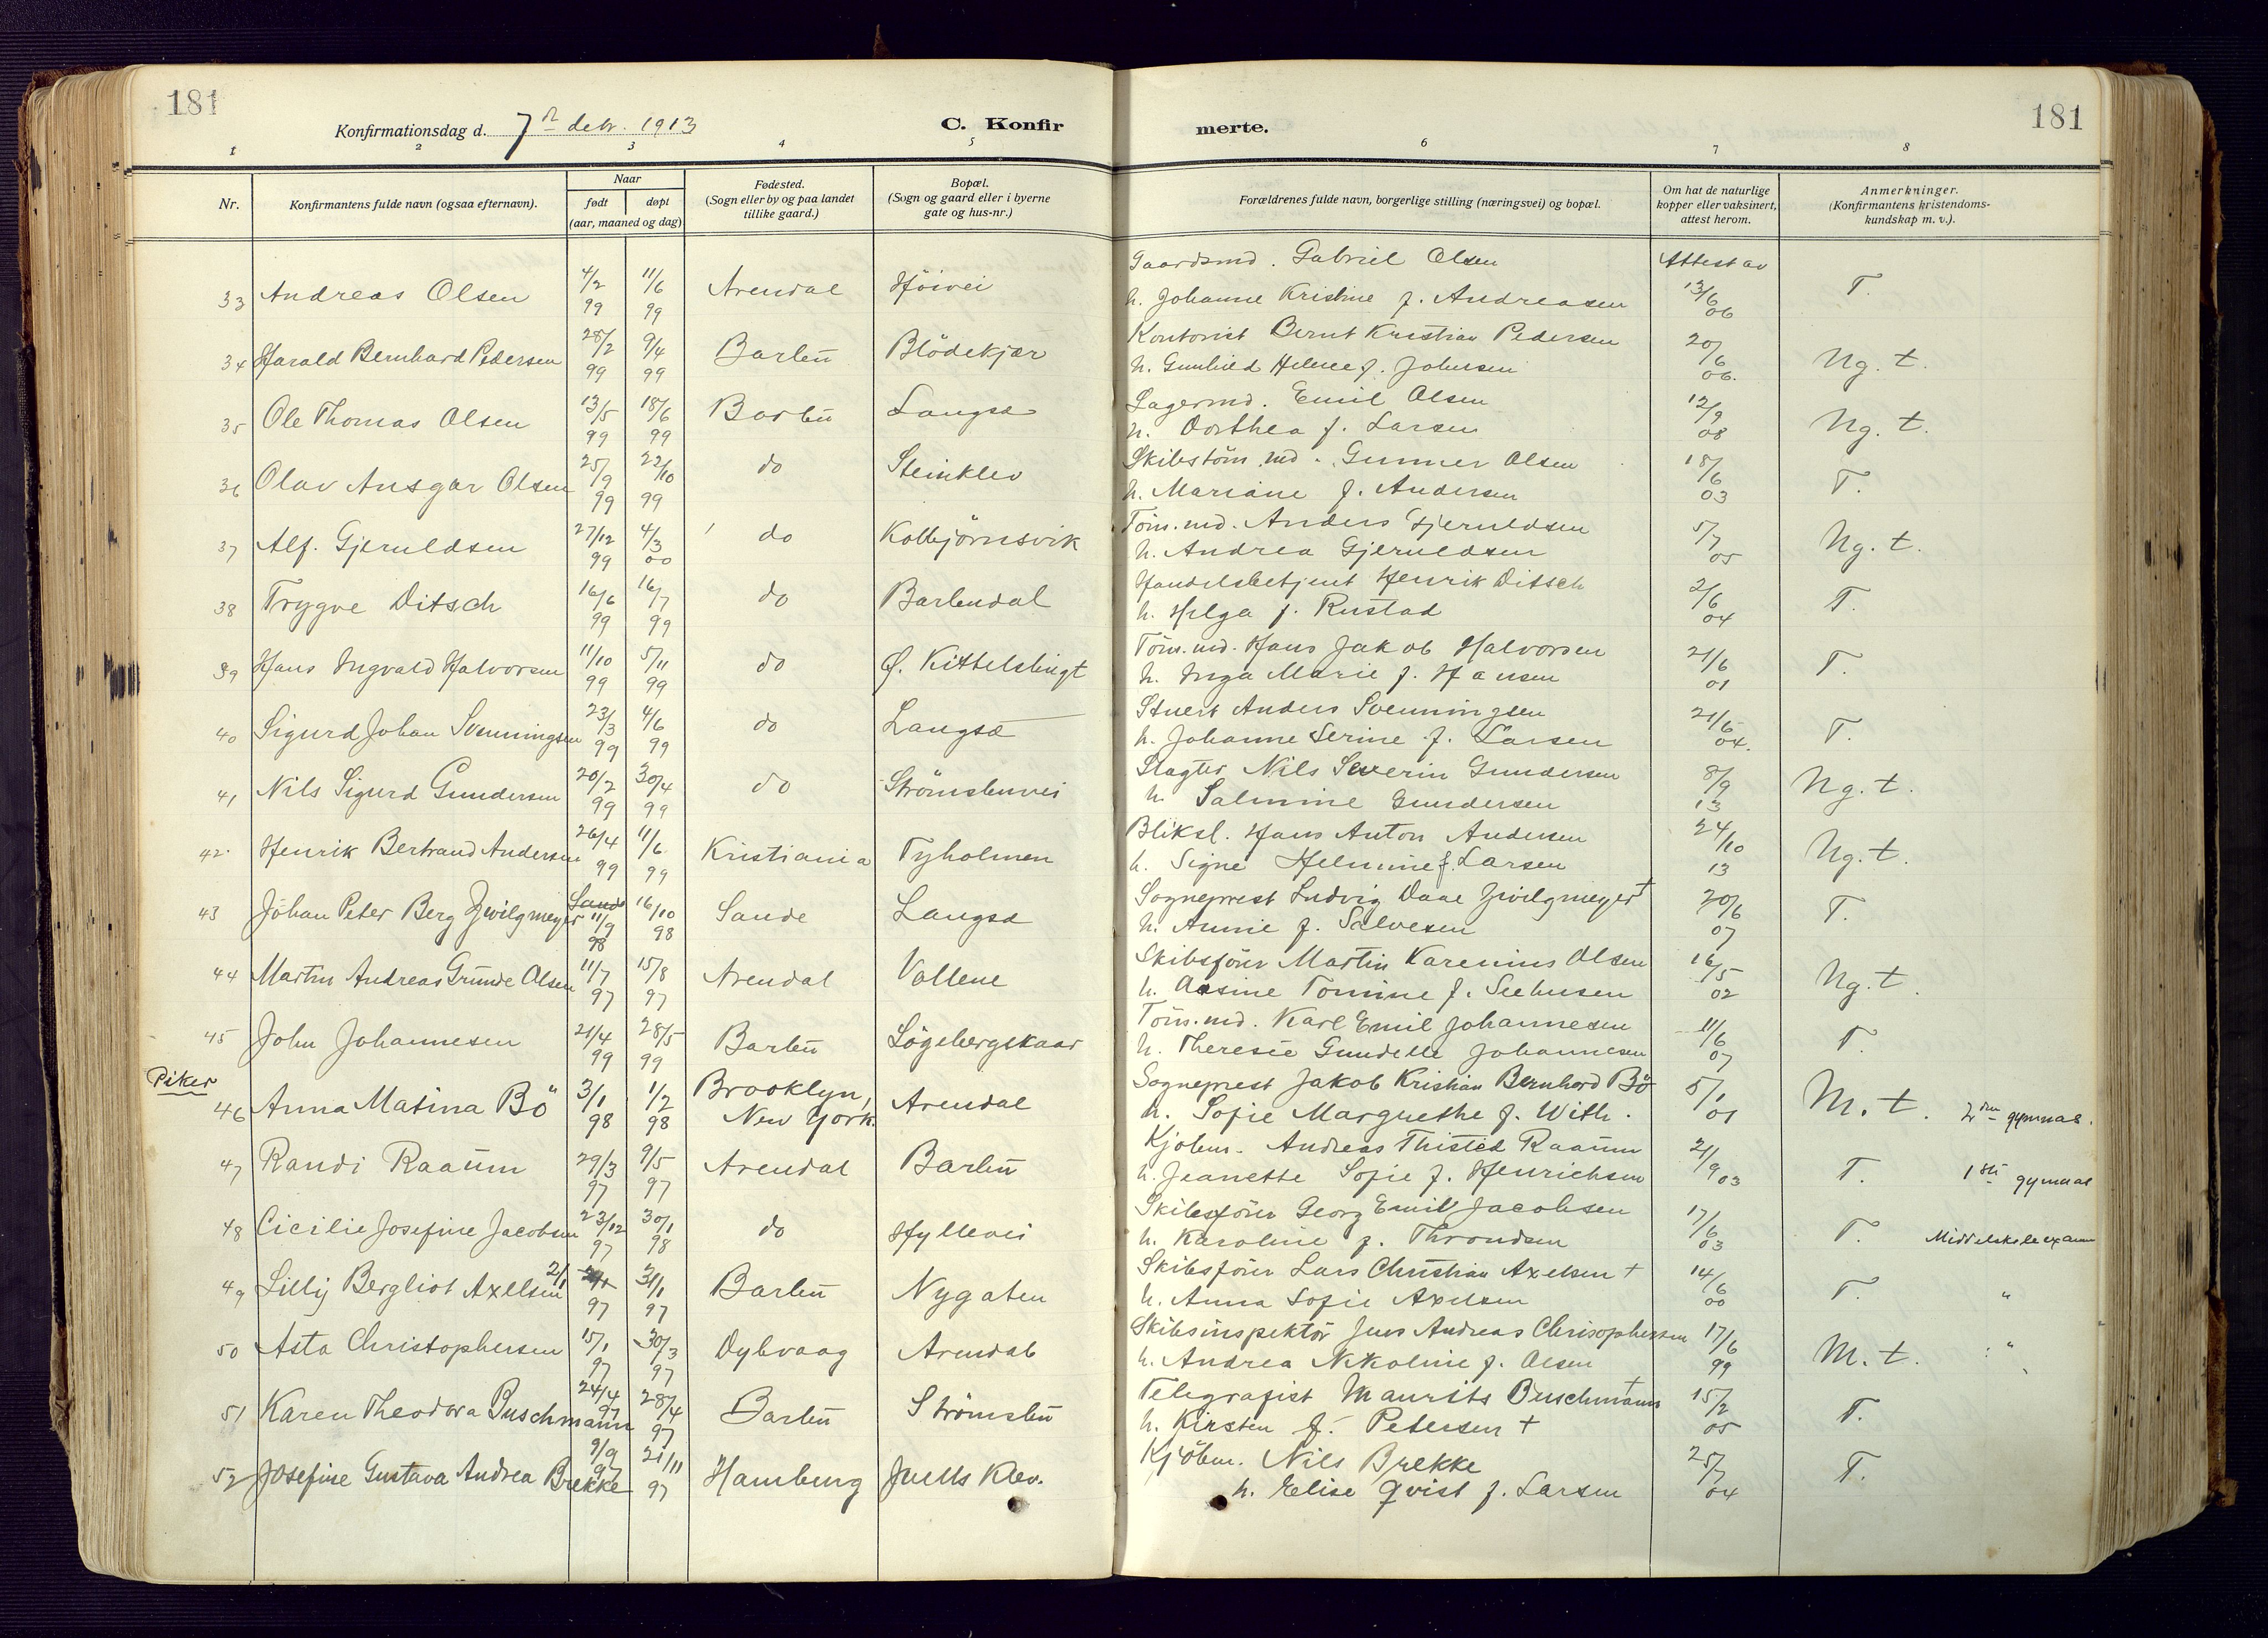 181
181
Konfirmationsdag d. 7 de dcbr. 1913
C. Konfir
merte.
1 2 3 4 5 6 7 8
Nr.
Konfirmantens fulde navn (ogsaa efternavn).
Naar
født døpt
(aar, maaned og dag)
Fødested.
(Sogn eller by og paa landet
tillike gaard.)
Bopæl.
(Sogn og gaard eller i byerne
gate og hus-nr.)
Forældrenes fulde navn, borgerlige stilling (næringsvei) og bopæl.
Om hat de naturlige
kopper eller vaksinert,
attest herom.
Anmerkninger.
(Konfirmantens kristendoms-
kundskap m. v.).
33 Andreas Olsen 4/2 99 11/6 99 Arendal Höivei Gaardsmd. Gabriel Olsen Attest av
h. Johanne Kristine f. Andreasen 13/6 06 T.
34 Harald Bernhard Pedersen 28/2 99 9/4 99 Barbu Blödekjær Kontorist Bernt Kristian Pedersen
h. Gunhild Helene f. Johnsen 20/6 06. Ng. t.
35 Ole Thomas Olsen 13/5 99 18/6 99 Barbu Langsæ Lagermd. Emil Olsen
h. Dorthea f. Larsen 12/9 08 Ng. t.
36 Olav Ansgar Olsen 25/9 99 22/10 99 do Steinklev Skibstöm.md. Gunner Olsen
h. Mariane f. Andersen 18/6 03 T.
37 Alf. Gjeruldsen 27/12 99 4/3 00 do Kolbjörnsvik Töm.md. Anders Gjeruldsen
h. Andrea Gjeruldsen 5/7 05 Ng. t.
38 Trygve Ditsch 16/6 99 16/7 99 do Barbudal Handelsbetjent Henrik Ditsch
h. Helga f. Rustad 2/6 04 T.
39 Hans Ingvald Halvorsen 11/10 99 5/11 99 do Ø. Kittelsbugt Töm.md. Hans Jakob Halvorsen
h. Inga Marie f. Hansen 21/6 01 T.
40 Sigurd Johan Svenningsen 23/3 99 4/6 99 do Langsæ Stuert Anders Svenningsen
h. Johanne Serine f. Larsen 21/6 04. T.
41 Nils Sigurd Gundersen 20/2 99 30/4 99 do Strömsbuvei Slagter Nils Severin Gundersen
h. Salmine Gundersen 8/9 13 Ng. t.
42. Henrik Bertrand Andersen 26/4 99 11/6 99 Kristiania Tyholmen Bliksl. Hans Anton Andersen
h. Signe Helmine f. Larsen 24/10 13 Ng. t.
43 Johan Peter Berg Zwilgmeyer Sande 11/9 98 16/10 98 Sande Langsæ Sogneprest Ludvig Daae Zwilgmeyer †
h. Annie f. Salvesen 20/6 07 T.
44 Martin Andreas Grunde Olsen 11/7 97 15/8 97 Arendal Vollene Skibsförer Martin Karenius Olsen
h. Aasine Tomine f. Seehusen 16/5 02 Ng. t.
45 John Johannesen 21/4 99 28/5 99 Barbu Lögebergskaar Töm.md. Karl Emil Johannesen
h. Theresie Gundelle Johannesen 11/6 07 T.
Piker
46 Anna Matina Bö 3/1 98 1/2 98 Brooklyn, New York. Arendal Sogneprest Jakob Kristian Bernhard Bö
h. Sofie Margrethe f. With. 5/1 01 M. t. 2den gymnas.
47 Randi Raaum 29/3 97 9/5 97 Arendal Barbu Kjobm. Andreas Thisted Raaum
h. Jeanette Sofie f. Henrichsen 21/9 03 T. 1ste gymnas
48 Cicilie Josefine Jacobsen 23/12 97 30/1 98 do Hyllevei Skibsförer Georg Emil Jacobsen
h. Karoline f. Throndsen 17/6 03 T. Middelskoleexamen
49 Lilly Bergliot Axelsen 2/1 97 31/1 97 Barbu Nygaten Skibsförer Lars Christian Axelsen †
h. Anna Sofie Axelsen 14/6 00 T. "
50 Asta Christophersen 15/1 97 30/3 97 Dybvaag Arendal Skibsinspektör Jens Andreas Chrisophersen
h. Andrea Nikoline f. Olsen 17/6 99 M. t. "
51 Karen Theodora Buschmann 24/4 97 28/4 97 Barbu Strömsbu Telegrafist Maurits Buschmann †
h. Kirsten f. Petersen † 15/2 05 T.
52 Josefine Gustava Andrea Brekke 9/9 97 21/11 97 Hamburg Juells Klev. Kjöbm. Nils Brekke
h. Elise Qvist f. Larsen 25/7 04 T.